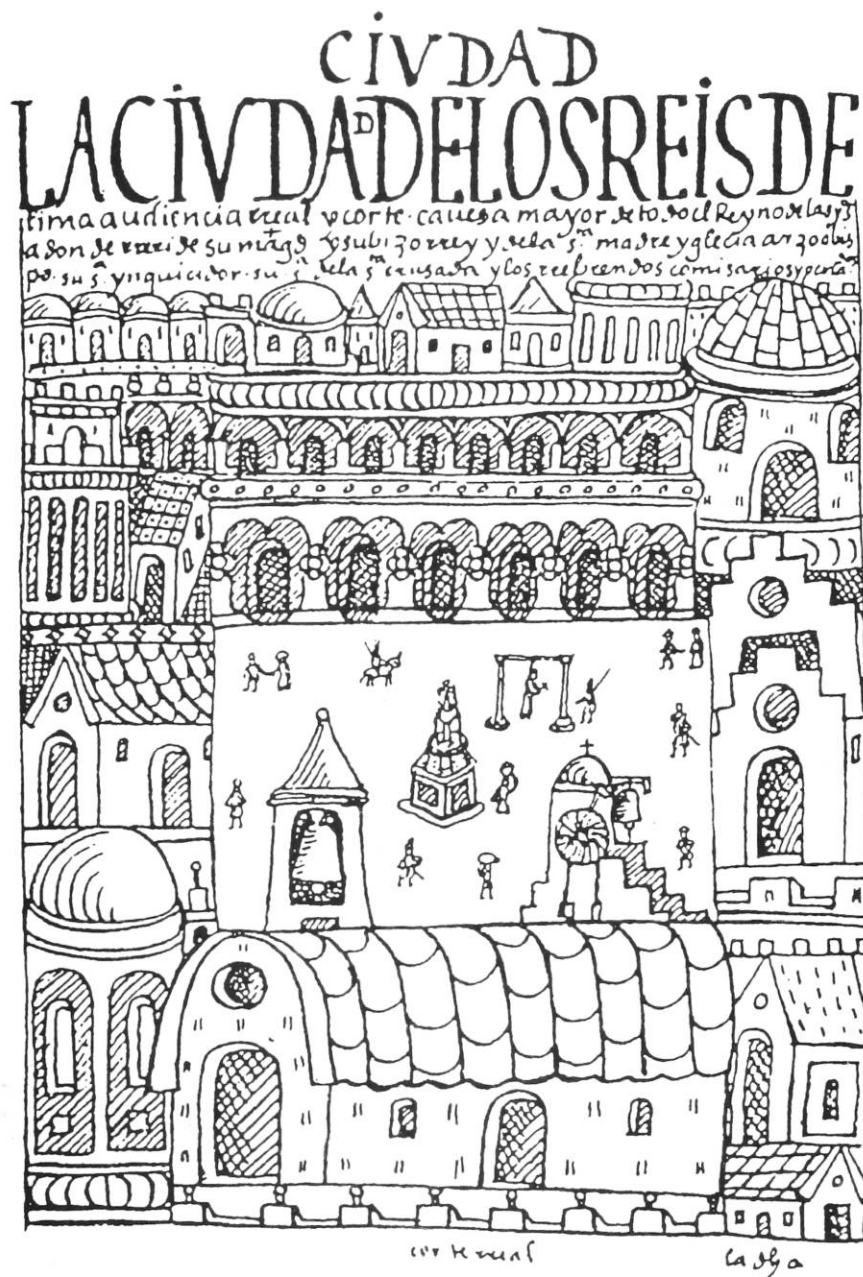 CIVDAD
LA CIVDAD DE LOS REIS DE
lima audiencia rreal y corte. cauesa mayor de todo el Reyno de las yns
a don de rreci de su magd y su bizorrey y de la sta madre yglecia arzobis
po. su sa ynquicidor. su sa de la sta crusada y los rrebrendos comisarios y
corte real